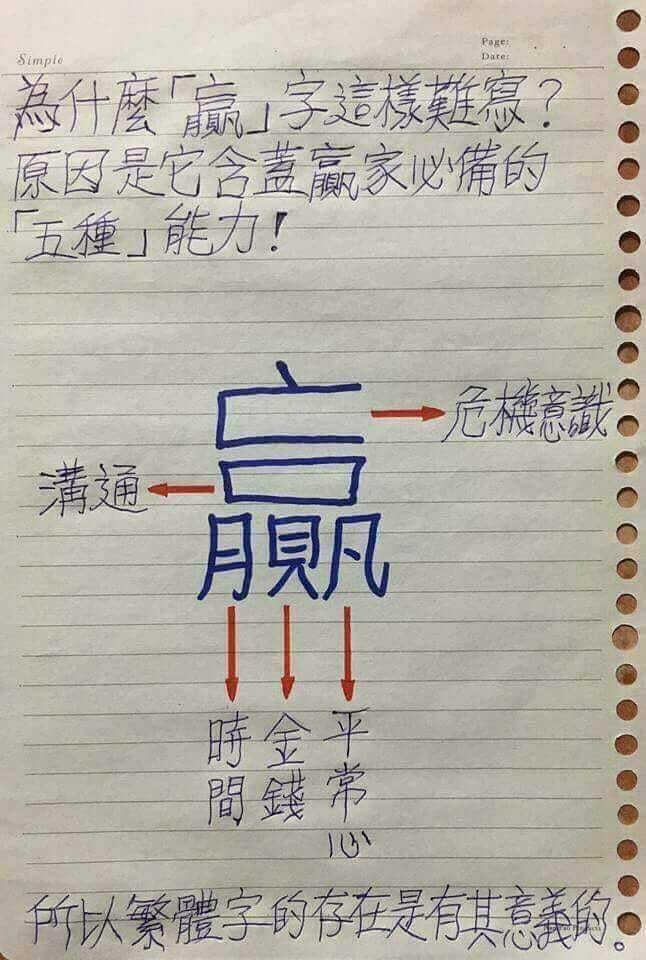 Simple
Page:
Date:
為什麼「贏」字這樣難寫?
原因是它含蓋贏家必備的
「五種」能力!
贏
危機意識
溝通
時間
金錢
平常心
所以繁體字的存在是有其意義的。